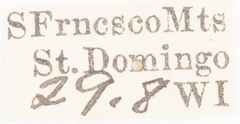 SFrncscoMts
St. Domingo
29.8 WI